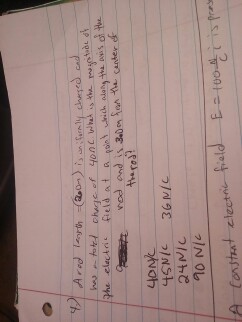 4.) A rod length = (2.0m) is uniformly charged and
has a total charge of 40nC. What is the magnitude of
the electric field at a point which along the axis of the
rod and is 3.0m from the center of
the rod?
40N/C
45N/C 36N/C
24N/C
90N/C
A constant electric field E = 100 N/C i is